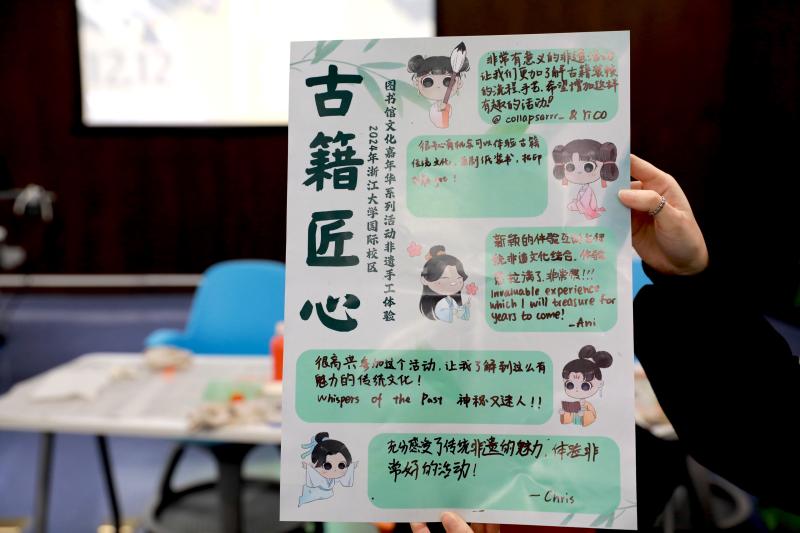 12.12
古籍匠心
图书馆文化嘉年华系列活动非遗手工体验
2024年浙江大学国际校区
非常有意义的非遗活动
让我们更加了解古籍装帧
的流程、手艺.希望增加这样
有趣的活动!
@collapsarrr_ & YiCO
很开心有机会可以体验古籍
传统文化,
书,拓印
新颖的体验互动与传
统非遗文化结合,体验
感拉满了,非常棒!!!
Invaluable experience
which I will treasure for
years to come!
-Ani
很高兴参加这个活动,让我了解到这么有
魅力的传统文化!
Whispers of the Past 神秘又迷人!!
充分感受了传统非遗的魅力,体验非
常好的活动!
-Chris